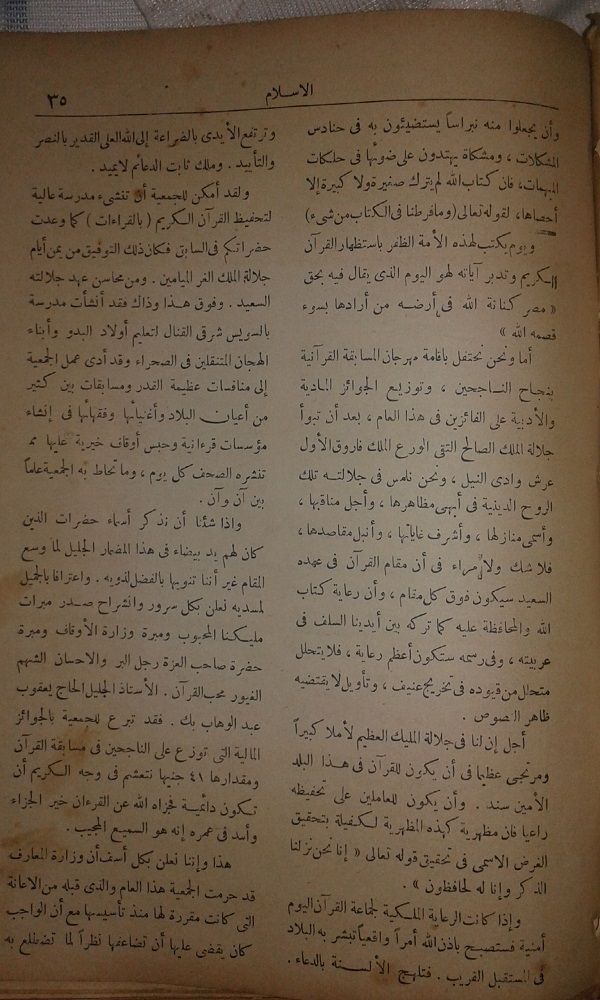 الاسلام
٣٥
وأن يجعلوا منه نبراساً يستضيئون به فى حنادس
المشكلات ، ومشكاة يهتدون على ضوئها فى حلكات
المبهمات، فان كتاب الله لم يترك صغيرة ولا كبيرة إلا
أحصاها، لقوله تعالى (وما فرطنا فى الكتاب من شىء)
ويوم يكتب لهذه الأمة الظفر باستظهار القرآن
الكريم وتدبر آياته لهو اليوم الذى يقال فيه بحق
« مصر كنانة الله فى أرضه من أرادها بسوء
قصمه الله »
أما ونحن نحتفل باقامة مهرجان المسابقة القرآنية
بنجاح الناجحين ، وتوزيع الجوائز المادية
والأدبية على الفائزين فى هذا العام ، بعد أن تبوأ
جلالة الملك الصالح التقى الورع الملك فاروق الأول
عرش وادى النيل ، ونحن نلمس فى جلالته تلك
الروح الدينية فى أبهى مظاهرها ، وأجل مناقبها ،
وأسمى منازلها ، وأشرف غاياتها ، وأنبل مقاصدها ،
فلا شك ولا مراء فى أن مقام القرآن فى عهده
السعيد سيكون فوق كل مقام ، وأن رعاية كتاب
الله والمحافظة عليه كما تركه بين أيدينا السلف فى
عربيته ، وفى رسمه ستكون أعظم رعاية ، فلا يتحلل
متحلل من قيوده فى تخريج عنيف ، وتأويل لا يقتضيه
ظاهر النصوص .
أجل إن لنا فى جلالة المليك العظيم لأملا كبيراً
ومرتجى عظيما فى أن يكون للقرآن فى هذا البلد
الأمين سند . وأن يكون للعاملين على تحفيظه
راعيا فان مظهرية كهذه المظهرية لكفيلة بتحقيق
الغرض الاسمى فى تحقيق قوله تعالى « إنا نحن نزلنا
الذكر وإنا له لحافظون » .
وإذا كانت الرعاية الملكية لجماعة القرآن اليوم
أمنية فستصبح باذن الله أمراً واقعياً تبشر به البلاد
فى المستقبل القريب . فتلهج الألسنة بالدعاء .
وترتفع الأيدى بالضراعة إلى الله العلى القدير بالنصر
والتأييد . وملك ثابت الدعائم لا يميد .
ولقد أمكن للجمعية أن تنشىء مدرسة عالية
لتحفيظ القرآن الكريم ( بالقراءات ) كما وعدت
حضراتكم فى السابق فكان ذلك التوفيق من يمن أيام
جلالة الملك الغر الميامين . ومن محاسن عهد جلالته
السعيد . وفوق هذا وذاك فقد أنشأت مدرسة
بالسويس شرقى القنال لتعليم أولاد البدو وأبناء
الهجان المتنقلين فى الصحراء وقد أدى عمل الجمعية
إلى منافسات عظيمة القدر ومسابقات بين كثير
من أعيان البلاد وأغنيائها وفقهائها فى إنشاء
مؤسسات قرءانية وحبس أوقاف خيرية عليها مما
تنشره الصحف كل يوم ، وما تحاط به الجمعية علما
بين آن وآن .
واذا شئنا أن نذكر أسماء حضرات الذين
كان لهم يد بيضاء فى هذا المضمار الجليل لما وسع
المقام غير أننا تنويها بالفضل لذويه . واعترافا بالجميل
لمسديه نعلن بكل سرور وانشراح صدر مبرات
مليكنا المحبوب ومبرة وزارة الأوقاف ومبرة
حضرة صاحب العزة رجل البر والاحسان الشهم
الغيور محب القرآن . الأستاذ الجليل الحاج يعقوب
عبد الوهاب بك . فقد تبرع للجمعية بالجوائز
المالية التى توزع على الناجحين فى مسابقة القرآن
ومقدارها ٤١ جنيها نتعشم فى وجه الكريم أن
تكون دائمية فجزاه الله عن القرءان خير الجزاء
وأسد فى عمره إنه هو السميع المجيب .
هذا وإننا نعلن بكل أسف أن وزارة المعارف
قد حرمت الجمعية هذا العام والذى قبله من الاعانة
التى كانت مقررة لها منذ تأسيسها مع أن الواجب
كان يقضى عليها أن تضاعفها نظراً لما تضطلع به